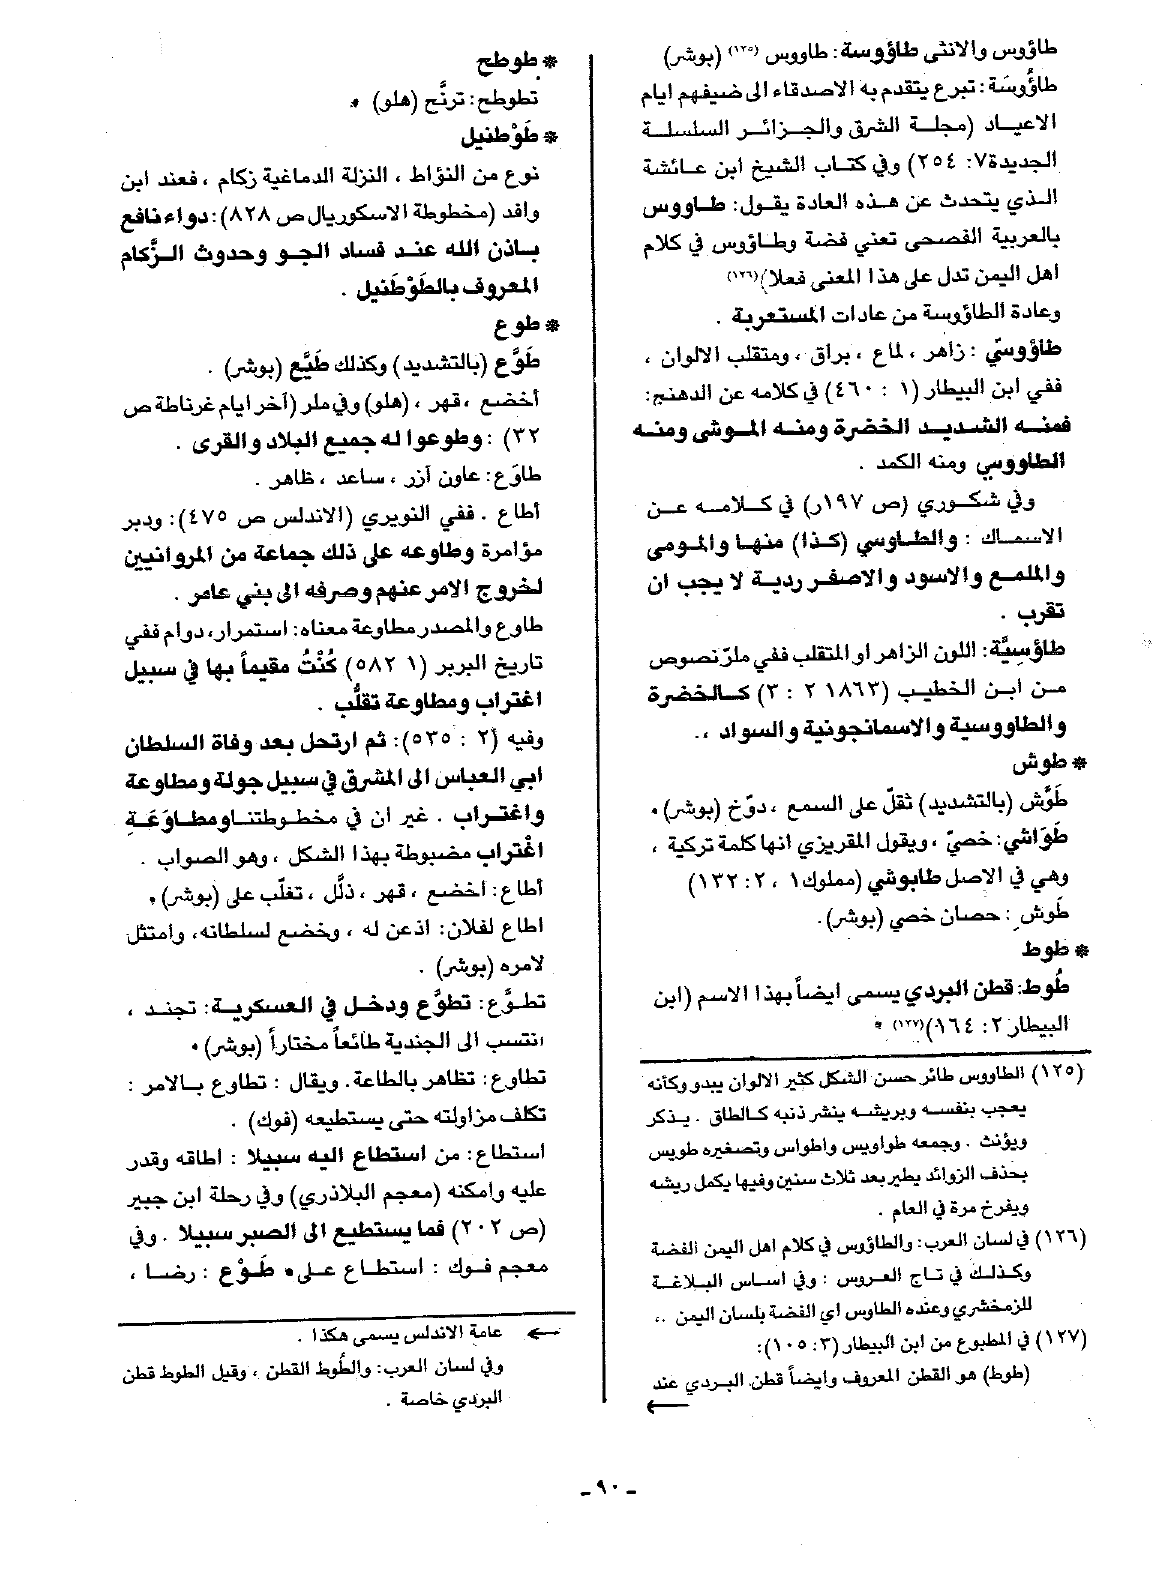 طاؤوس والانثى طاؤوسة: طاووس (١٢٥) (بوشر)
طاؤُوسَة: تبرع يتقدم به الاصدقاء الى ضيفهم ايام
الاعياد (مجلة الشرق والجزائر السلسلة
الجديدة٧: ٢٥٤) وفي كتاب الشيخ ابن عائشة
الذي يتحدث عن هذه العادة يقول: طاووس
بالعربية الفصحى تعني فضة وطاؤوس في كلام
اهل اليمن تدل على هذا المعنى فعلا)(١٢٦)
وعادة الطاؤوسة من عادات المستعربة .
طاؤوسيّ : زاهر ، لماع ، براق ، ومتقلب الالوان ،
ففي ابن البيطار (١ : ٤٦٠) في كلامه عن الدهنج:
فمنه الشديد الخضرة ومنه الموشى ومنه
الطاووسي ومنه الكمد .
وفي شكوري (ص ١٩٧ر) في كلامه عن
الاسماك : والطاوسي (كذا) منها والمومى
والملمع والاسود والاصفر ردية لا يجب ان
تقرب .
طاؤسِيَّة: اللون الزاهر او المتقلب ففي ملرّ نصوص
من ابن الخطيب (١٨٦٣ ٢ : ٣) كالخضرة
والطاووسية والاسمانجونية والسواد ..
* طوش
طَوَّش (بالتشديد) ثقلّ على السمع ، دوّخ (بوشر) •
طَوَاشي: خصيّ ، ويقول المقريزي انها كلمة تركية ،
وهي في الاصل طابوشي (مملوك١ ، ٢: ١٣٢)
طَوش : حصان خصي (بوشر).
* طوط
طُوط: قطن البردي يسمى ايضاً بهذا الاسم (ابن
البيطار ٢: ١٦٤)(١٢٧) •
(١٢٥) الطاووس طائر حسن الشكل كثير الالوان يبدو وكأنه
يعجب بنفسه وبريشه ينشر ذنبه كالطاق . يذكر
ويؤنث . وجمعه طواويس واطواس وتصغيره طويس
بحذف الزوائد يطير بعد ثلاث سنين وفيها يكمل ريشه
ويفرخ مرة في العام .
(١٢٦) في لسان العرب: والطاؤوس في كلام اهل اليمن الفضة
وكذلك في تاج العروس : وفي اساس البلاغة
للزمخشري وعنده الطاوس اي الفضة بلسان اليمن ..
(١٢٧) في المطبوع من ابن البيطار (٣: ١٠٥):
(طوط) هو القطن المعروف وايضاً قطن البردي عند
←
* طوطح
تطوطح: ترنَّح (هلو) •
* طَوْطنيل
نوع من النؤاط ، النزلة الدماغية زكام ، فعند ابن
وافد (مخطوطة الاسكوريال ص ٨٢٨): دواء نافع
باذن الله عند فساد الجو وحدوث الزُّكام
المعروف بالطَوْطَنيل .
* طوع
طَوَّع (بالتشديد) وكذلك طَيَّع (بوشر) .
أخضع ، قهر ، (هلو) وفي ملر (آخر ايام غرناطة ص
٣٢) : وطوعوا له جميع البلاد والقرى .
طاوَع: عاون آزر ، ساعد ، ظاهر .
أطاع . ففي النويري (الاندلس ص ٤٧٥): ودبر
مؤامرة وطاوعه على ذلك جماعة من المروانيين
لخروج الامر عنهم وصرفه الى بني عامر .
طاوع والمصدر مطاوعة معناه: استمرار، دوام ففي
تاريخ البربر (١ ٥٨٢) كُنْتُ مقيماً بها في سبيل
اغتراب ومطاوعة تقلُّب .
وفيه (٢ : ٥٣٥): ثم ارتحل بعد وفاة السلطان
ابي العباس الى المشرق في سبيل جولة ومطاوعة
واغتراب . غير ان في مخطوطتنا ومطاوَعَةِ
اغْتراب مضبوطة بهذا الشكل ، وهو الصواب .
أطاع: اخضع ، قهر ، ذلَّل ، تغلّب على (بوشر) •
اطاع لفلان: اذعن له ، وخضع لسلطانه، وامتثل
لامره (بوشر) .
تطوَّع: تطوَّع ودخل في العسكرية: تجند ،
انتسب الى الجندية طائعاً مختاراً (بوشر) •
تطاوع: تظاهر بالطاعة. ويقال : تطاوع بالامر :
تكلف مزاولته حتى يستطيعه (فوك) .
استطاع: من استطاع اليه سبيلا : اطاقه وقدر
عليه وامكنه (معجم البلاذري) وفي رحلة ابن جبير
(ص ٢٠٢) فما يستطيع الى الصبر سبيلا . وفي
معجم فوك : استطاع على • طَوْع : رضا ،
← عامة الاندلس يسمى هكذا .
وفي لسان العرب: والطُوط القطن ، وقيل الطوط قطن
البردي خاصة .
- ٩٠ -